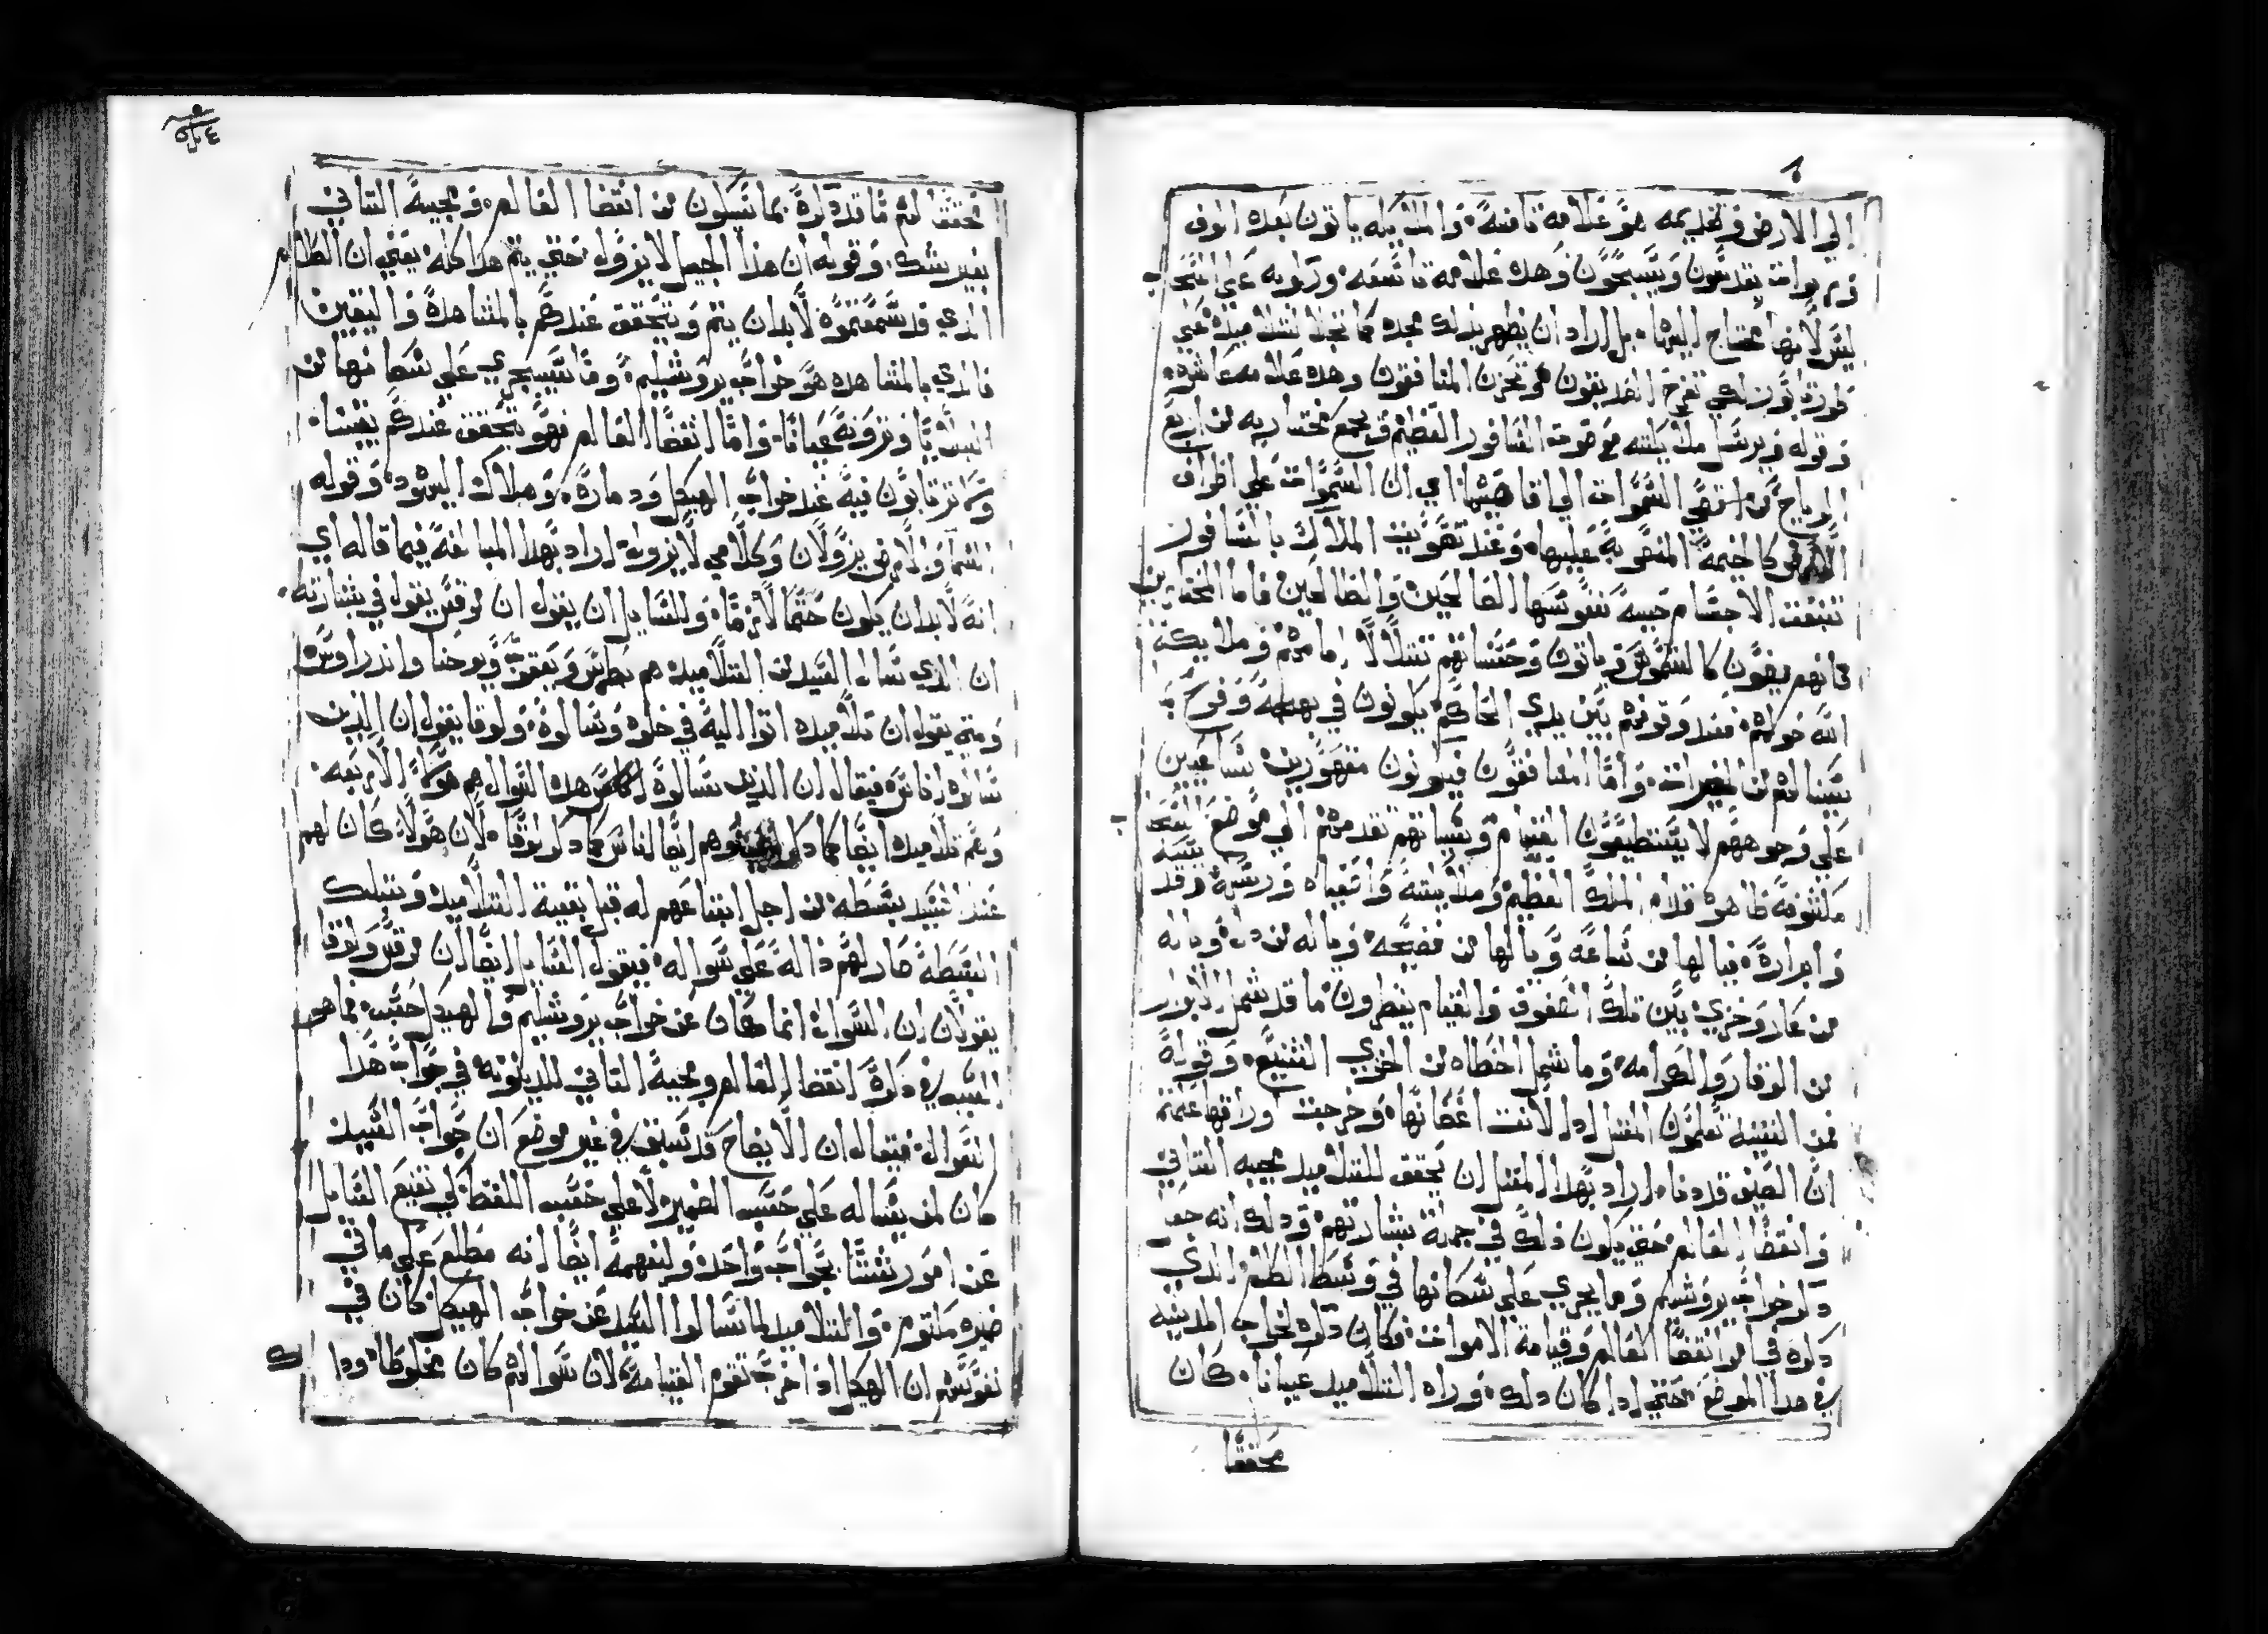 الي الارض وتخديمه هو علامه تامنة. والملايكه ياتون بعده الوف
وربوات يقدسون ويسبحون وهده علامه تاسعه. وركوبه علي السحاب
ليس لانها محتاج اليها. بل اراد ان يظهر بذلك مجده كما تجلا لتلاميذه علي
طور تابور لكي تفرح الصديقون وتحزن المنافقون وهده علامه عاشره.
وقوله ويرسل ملايكته مع صوت السافور العظيم ويجمع مختاريه من اربع
الرياح من اقصي السموات الي اقاصيها اي ان السموات علي اطراف
الارض كالخيمة المنصوبة عليها. وعند تصويت الملاك بالسافور
تنبعث الاجسام حيه بنفوسها الصالحين والطالحين فاما المختارين
فانهم يضون كالشموس وياتون وحسناتهم تتلالا امامهم وملايكة
الله حولهم. فعند وقوفهم بين يدي الحاكم يكونون في بهجة وفرح بما
يتناولهم من الخيرات. واما المنافقون فيكونون مقهورين ساعيين
علي وجوههم لا يستطيعون القيام وسياتهم تقدمهم الي موضع
مكشوفة ظاهره قدام الملك العظيم وملايكته واصفياه ورسله وقد
وابراره. فيالها من ساعه ويالها من فضيحه. وياله من دل. وياله
من عار وخزي بين تلك الصفوف والقيام ينظرون. ما قد شمل الابرار
من الوقار والكرامه. وما شمل الخطاه من الخزي الشنيع. وقوله
فمن التينه تعلمون المتل ادا لانت اغصانها. وخرجت اوراقها علمتم
ان الصيف قد دنا. اراد بهدا المتل ان يحقق للتلاميد مجيه التاني
وانقضا العالم حتي يكون ذلك في جملة بشارتهم. ودلك انه حين
دكر خراب يروشليم وما يجري علي سكانها في وسط الكلام الدي
دكره في امر انقضا العالم وقيامة الاموات. فكان دكره لخراب المدينه
في هدا الموضع. حتي ادا كان دلك. وراه التلاميد عيانا. كان
محققا
محققا لهم ما قد دكره بما تسالون من انقضا العالم. ومجيه التاني
بغير شك. وقوله ان هدا الجيل لا يزول. حتي يتم هدا كله. يعني ان الكلام
الدي قد سمعتموه لابد ان يتم ويتحقق عندكم بالمشاهدة واليقين
فالدي بالمشاهده هو خراب يروشليم. وما سيجري علي سكانها من
البلايا وترونه عيانا. واما انقضا العالم فهو يتحقق عندكم يقينا.
ولا ترتابون فيه عند خراب الهيكل ودماره. وهلاك اليهود. وقوله
السما والارض يزولان وكلامي لا يزول. اراد بهدا المبالغة فيما قاله اي
انه لابد ان يكون حتما لازما. وللقايل ان يقول ان مرقس يقول في بشارته.
ان الدي سال السيد من التلاميد هم بطرس ويعقوب ويوحنا واندراوس
ومتي يقول ان تلاميده اتوا اليه في خلوه وسالوه. ولوقا يقول ان الدين
سالوه اناس فيقال ان الذين سالوه هده السوال هم هولا الاربعه.
وهم تلاميده ايضا كما دكر وهم ايضا اناس كما دكر لوقا. لان هولا كان لهم
عند السيد بسطه من اجل اتباعهم له قبل بقية التلاميد وبتلك
البسطة صار لهم دالة علي سواله. فيقول القايل ايضا ان مرقس ولوقا
يقولان ان السوال انما كان عن خراب يروشليم والهيكل حسب. فما هو
السبب في دكره انقضا العالم ومجيه التاني للدينونه في جواب هدا
السوال. فيقال ان الايضاح قد سبق في غير موضع ان جواب السيد
كان لمن يساله علي حسب الضمير لا علي حسب اللفظ. كي تقنع السايل
عن امور شتا بجواب واحد. وليفهمه ايضا انه مطلع علي ما في
ضميره مكتوم. والتلاميد لما سالوا السيد عن خراب الهيكل كان في
نفوسهم ان الهيكل ادا خرب تقوم القيامة. لان سوالهم كان مخلوطا. ودا
لك